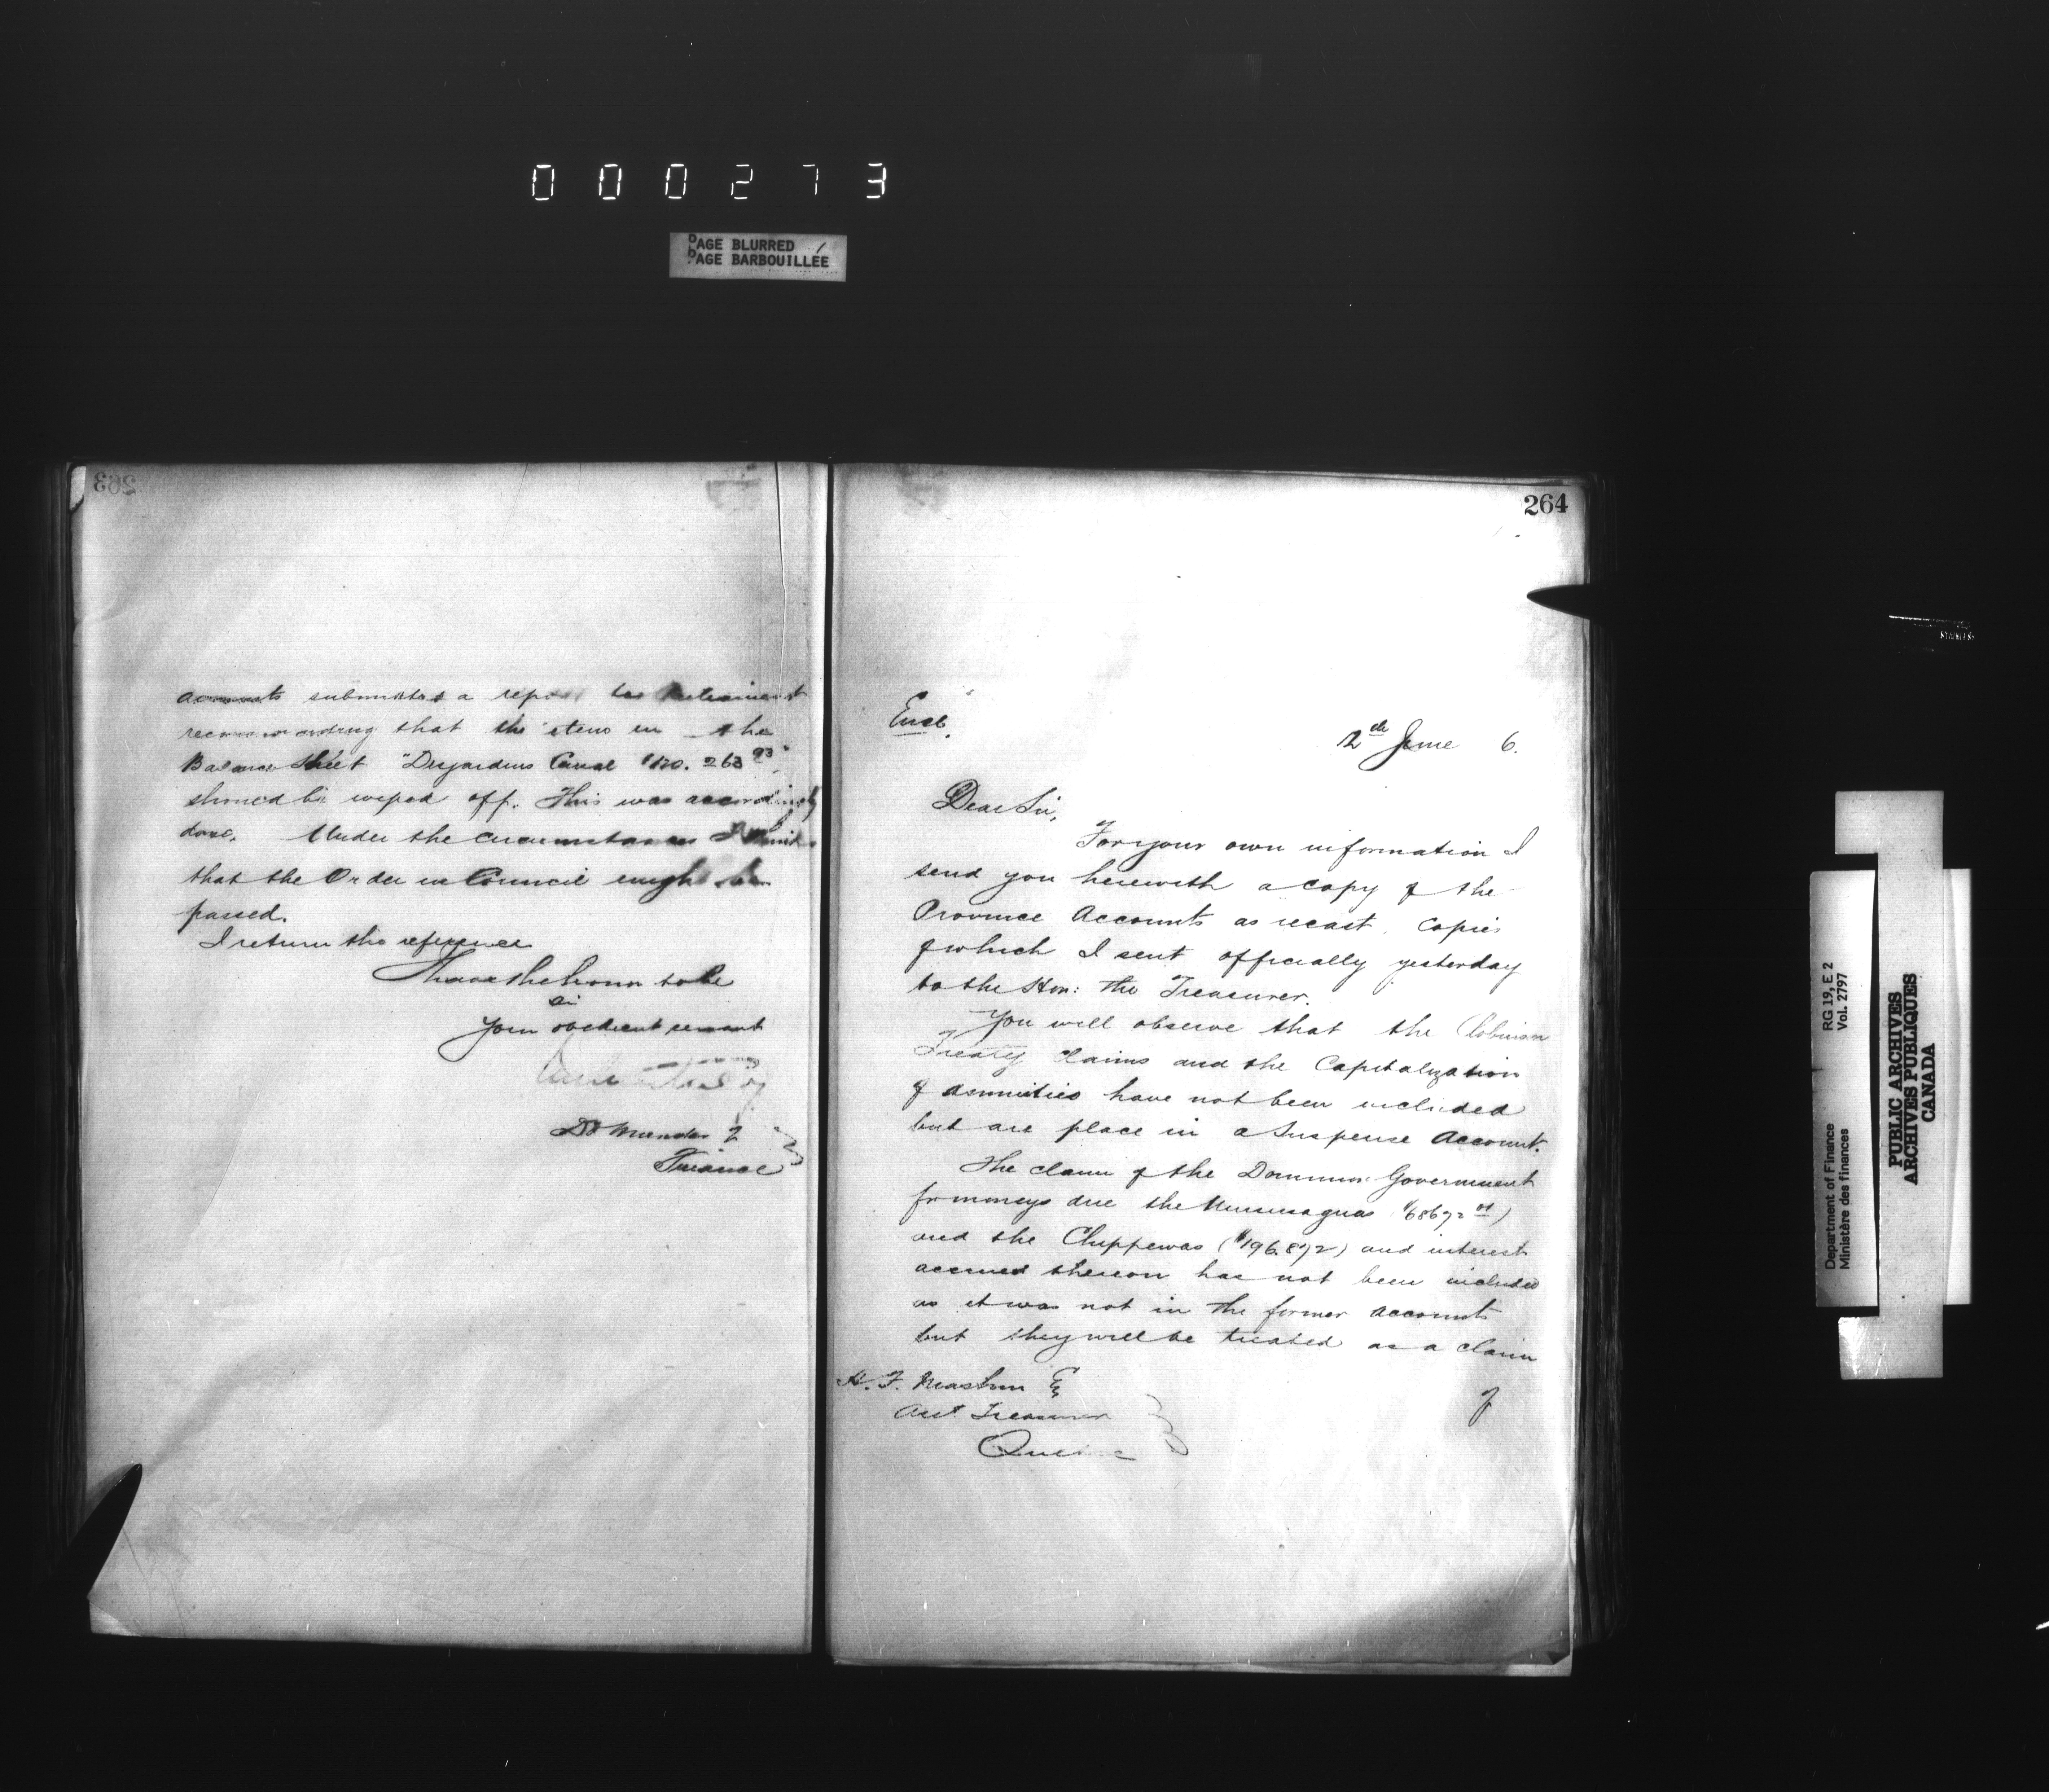 000273
PAGE BLURRED
PAGE BARBOUILLÉE
263
accounts submitted a report to Parliament
recommending that the item in the
Balance Sheet "Desjardins Canal $120.263 93"
should be wiped off. This was accordingly
done. Under the circumstances I think
that the Order in Council might be
passed.
I return the reference
I have the honor to be
Sir
Your obedient servant
DM Minister of
Finance
264
Encl.
2d June 6.
Dear Sir,
For your own information I
send you herewith a copy of the
Province Accounts as recast. Copies
of which I sent officially yesterday
to the Hon: the Treasurer.
You will observe that the Robinson
Treaty claims and the Capitalization
of annuities have not been included
but are place in a Suspense Account.
The claim of the Dominion Government
for moneys due the Mississaguas $68672 01)
and the Chippewas ($196.872) and interest
accrued thereon has not been included
as it was not in the former accounts
but they will be treated as a claim
of
H. F. Esq
Asst Treasurer
Quebec
Department of Finance
Ministère des finances
RG 19, E 2
Vol. 2797
PUBLIC ARCHIVES
ARCHIVES PUBLIQUES
CANADA